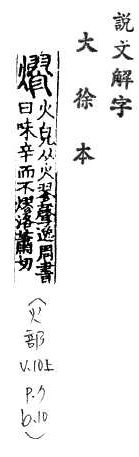 說文解字
大徐本
熮
火皃从火翏聲逸周書
曰味辛而不熮洛蕭切
(火部 V.10上 P.7 b.10)